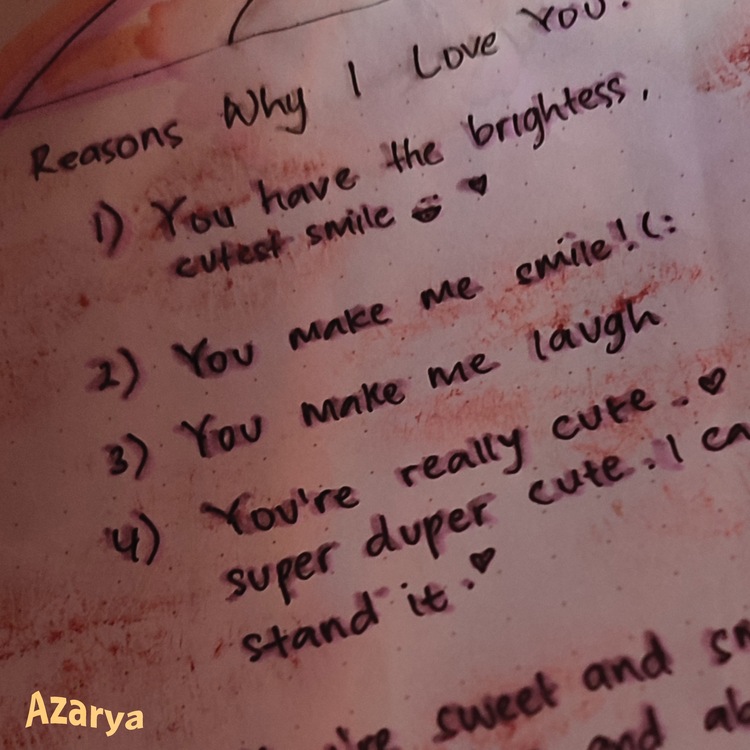 Reasons Why I Love You.
1) You have the brightess,
cutest smile ♥
2) You make me smile! (:
3) You make me laugh
4) You're really cute. ♥
super duper cute. I
stand it. ♥
sweet and
and
Azarya